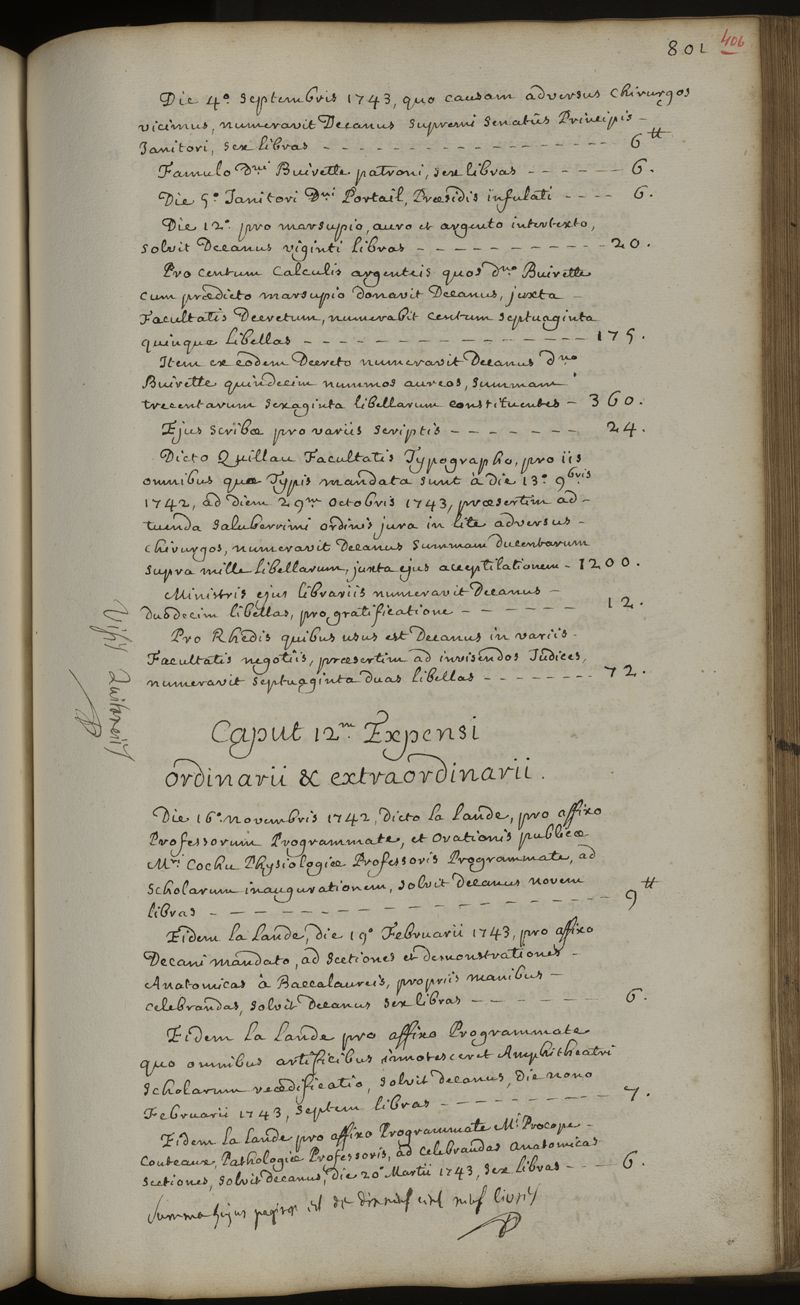 801 406
Die 4ª Septembris 1743, quo causam adversus Chirurgos
vicimus, numeravit Decanus Supremi Senatûs Principis
Janitori, sex libras - - - - - - - - - - - - 6 ₶
Famulo Dni Buirette patroni, sex libras - - - - - - 6.
Die 5ª Janitori Dni Portail, Præsidis infulati - - - - 6.
Die 12ª pro marsupio, auro et argento intertexto,
solvit Decanus viginti libras - - - - - - - - - - - 20.
Pro Centum Calculis argenteis quos dno Buirette
cum prædicto marsupio donavit Decanus, juxta
Facultatis Decretum, numerabit centum septuaginta
quinque libellas - - - - - - - - - - - - - - - 175.
Item ex eodem Decreto numeravit Decanus dno
Buirette quindecim nummos aureos, summam
trecentarum sexaginta libellarum constituentes - 360.
Ejus scribæ pro variis scriptis - - - - - - - 24.
Dicto Quillau Facultatis Typographo, pro iis
omnibus quæ Typis mandata sunt à die 13ª 9bris
1742, ad diem 29am Octobris 1743, præsertim ad
tuenda saluberrimi ordinis jura in lite adversus
chirurgos, numeravit Decanus summam ducentarum
supra mille libellarum, juxta ejus acceptilationem - 1200.
Ministris ejus librariis numeravit Decanus
duodecim libellas, pro gratificatione - - - - - - 12.
Pro Rhedis quibus usus est Decanus in variis
Facultatis negotiis, præsertim ad invisendos Judices,
numeravit septuaginta duas libellas - - - - - - - 72.
Caput 12m Expensi
ordinarii & extraordinarii.
Die 16ª novembris 1742, dicto la Lande, pro affixo
Professorum Programmate, et Orationis publicæ
Mri Cochu Physiologiæ Professoris Programmate, ad
Scholarum inaugurationem, solvit decanus novem
libras - - - - - - - - - - - - - - - - 9 ₶
Eidem la Lande, die 19ª Februarii 1743, pro affixo
Decani mandato, ad sectiones et demonstrationes
Anatomicas à Baccalaureis, propriis manibus
celebrandas, solvit decanus sex libras - - - - - - 6.
Eidem la Lande pro affixo Programmate
quo omnibus artificibus innotesceret Amphitheatri
Scholarum reædificatio, solvit decanus, die nono
Februarii 1743, septem libras - - - - - - - - - 7.
Eidem la Lande pro affixo Programmate Mi Procope
Couteaux, Pathologiæ Professoris, ad celebrandas anatomicas
sectiones, solvit decanus, die 20ª Martii 1743, sex libras - - - 6.
Summa hujus paginæ est de dix neuf cent neuf livres